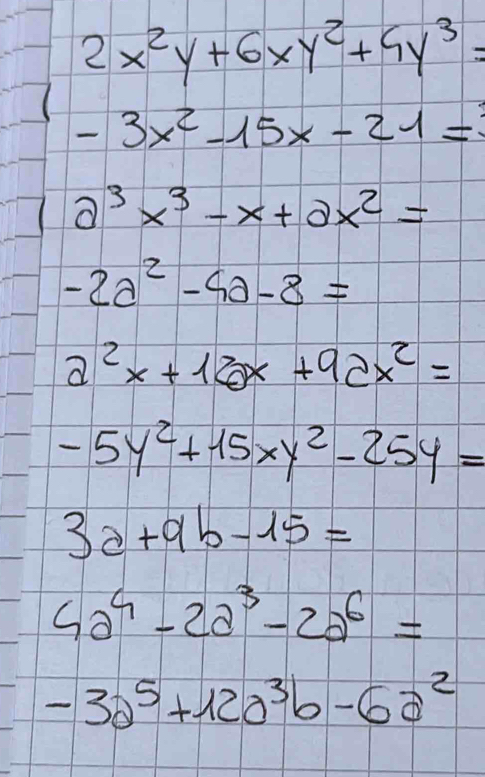 2x²y+6xy²+4y³=
-3x²-15x-21=
a³x³-x+ax²=
-2a²-4a-8=
a²x+12ax+9ax²=
-5y²+15xy²-25y=
3a+9b-15=
4a⁴-2a³-2a⁶=
-3a⁵+12a³b-6a²